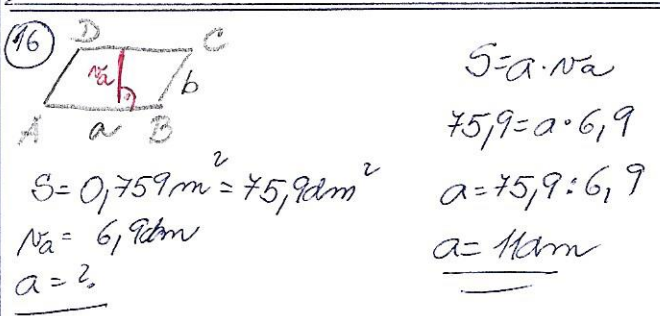 16
D C
va b
A a B
S = 0,759 m² = 75,9 dm²
va = 6,9 dm
a = ?
S = a · va
75,9 = a · 6,9
a = 75,9 : 6,9
a = 11 dm